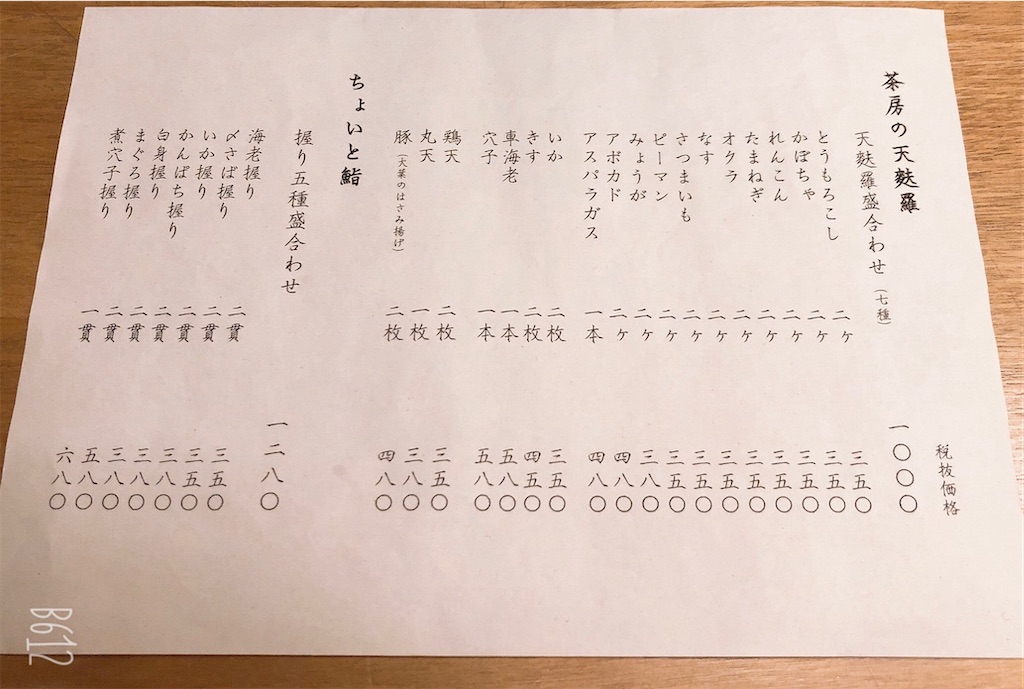 税抜価格
茶房の天麩羅
天麩羅盛合わせ（七種） 一〇〇〇
とうもろこし 二ヶ 三五〇
かぼちゃ 二ヶ 三五〇
れんこん 二ヶ 三五〇
たまねぎ 二ヶ 三五〇
オクラ 二ヶ 三五〇
なす 二ヶ 三五〇
さつまいも 二ヶ 三五〇
ピーマン 二ヶ 三五〇
みょうが 二ヶ 三八〇
アボカド 二ヶ 四八〇
アスパラガス 一本 四八〇
いか 二枚 三五〇
きす 二枚 四五〇
車海老 一本 五八〇
穴子 一本 五八〇
鶏天 二枚 三五〇
丸天 一枚 三八〇
豚（大葉のはさみ揚げ） 二枚 四八〇
ちょいと鮨
握り五種盛合わせ 一二八〇
海老握り 二貫 三五〇
〆さば握り 二貫 三五〇
いか握り 二貫 三八〇
かんぱち握り 二貫 三八〇
白身握り 二貫 三八〇
まぐろ握り 二貫 五八〇
煮穴子握り 一貫 六八〇
B612